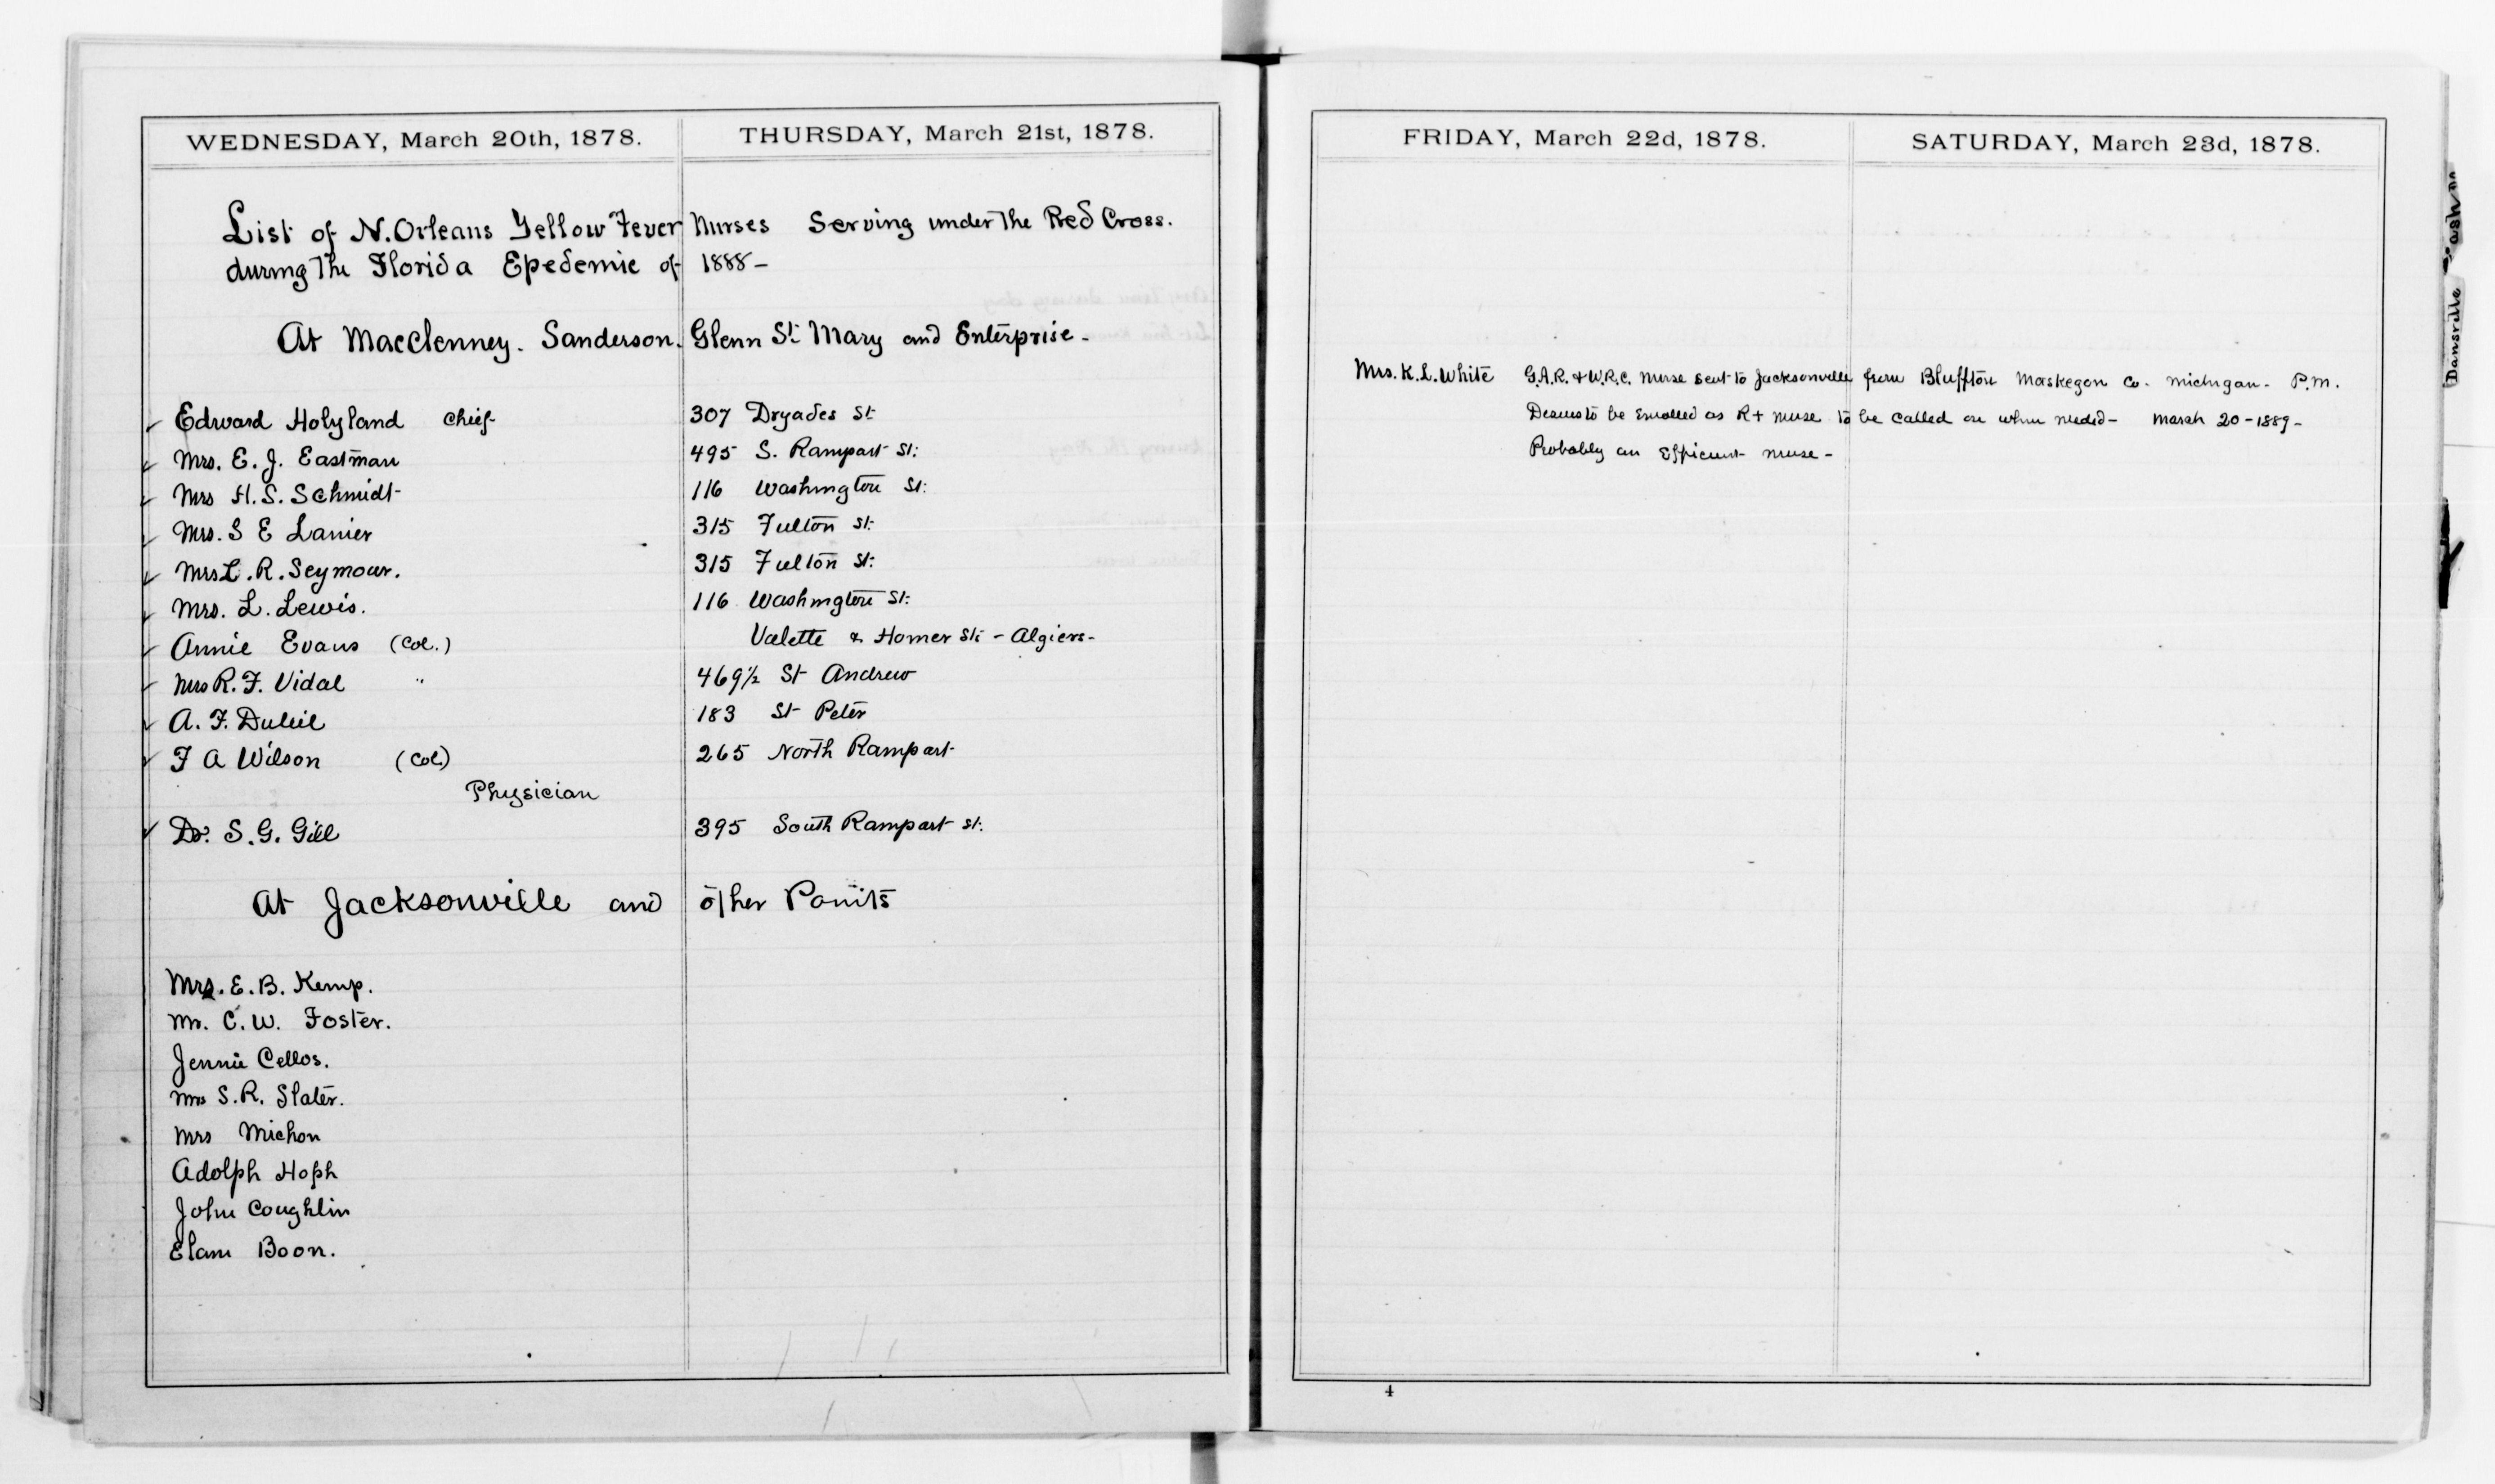 WEDNESDAY, March 20th, 1878. THURSDAY, March 21st, 1878.
List of N. Orleans Yellow Fever Nurses Serving under the Red Cross.
during the Florida Epedemic of 1888 -
At MacClenney. Sanderson. Glenn St. Mary and Enterprise -
Edward Holyland Chief 307 Dryades St.
Mrs. E. J. Eastman 495 S. Rampart St.
Mrs H. S. Schmidt 116 Washington St.
Mrs. S E Lanier 315 Fulton St.
Mrs L. R. Seymour. 315 Fulton St.
Mrs. L. Lewis. 116 Washington St.
Annie Evans (Col.) Valette & Homer Sts - Algiers -
Mrs R. F. Vidal " 469 1/2 St Andrew
A. F. 183 St Peter
F A Wilson (Col) 265 North Rampart
Physician
Dr. S. G. Gill 395 South Rampart St.
At Jacksonville and other Points
Mrs. E. B. Kemp.
Mr. C. W. Foster.
Jennie Cellos.
Mrs S. R. Slater.
Mrs Michon
Adolph Hoph
John Coughlin
Elam Boon.
FRIDAY, March 22d, 1878. SATURDAY, March 23d, 1878.
Mrs. K. L. White G.A.R. & W.R.C. nurse sent to Jacksonville from Bluffton Maskegon Co. Michigan - P.M.
Desires to be Enrolled as R+ nurse to be called on when needed - March 20 - 1889 -
Probably an Efficient nurse -
4
Dansville